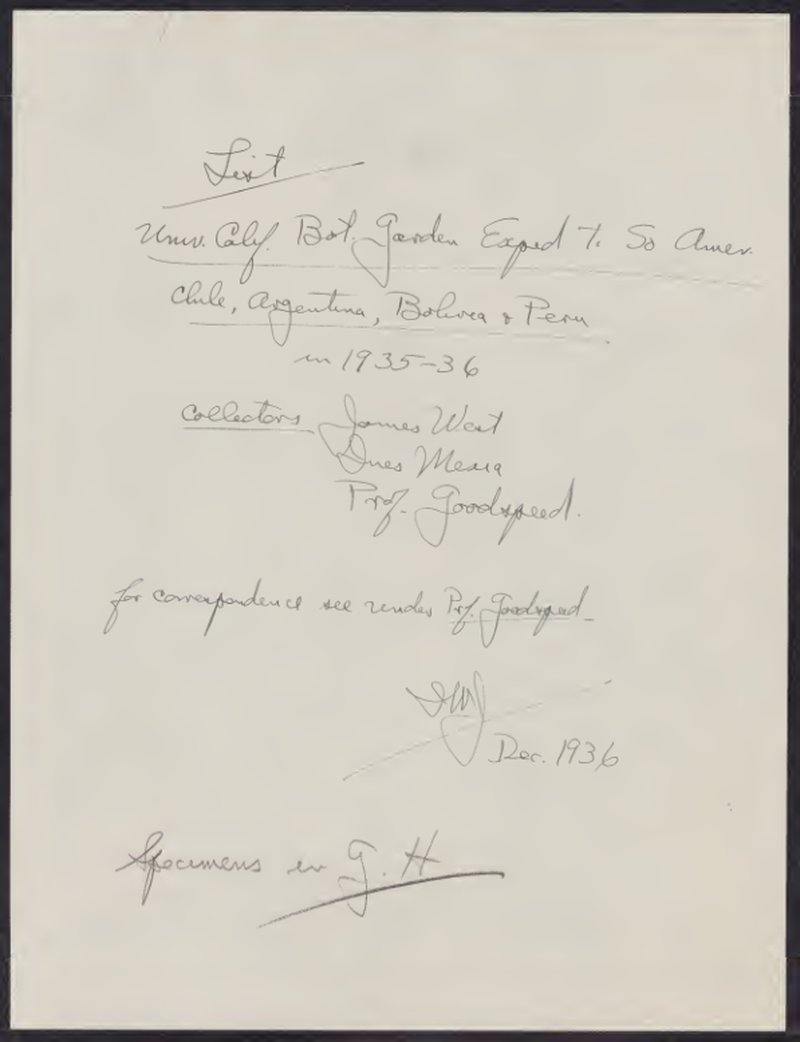 List
Univ. Calif. Bot. Garden Exped to So Amer.
Chile, Argentina, Bolivia & Peru
in 1935-36
Collectors James West
Ynes Mexia
Prof. Goodspeed.
for correspondence see under Prof. Goodspeed
IMJ
Dec. 1936
Specimens in G. H